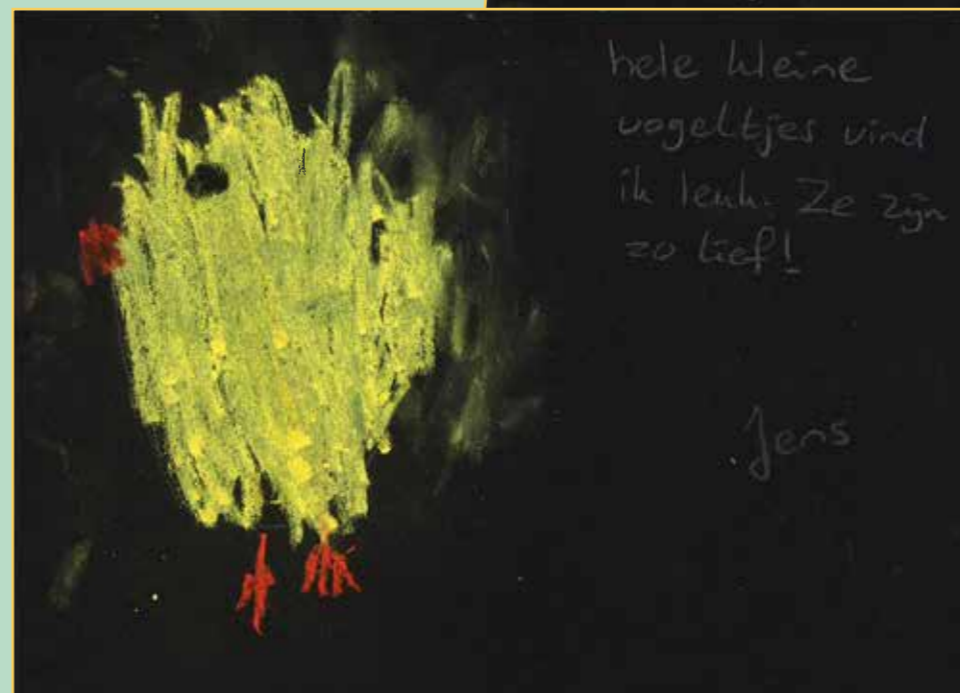 hele kleine
vogeltjes vind
ik leuk. Ze zijn
zo lief!
Jens